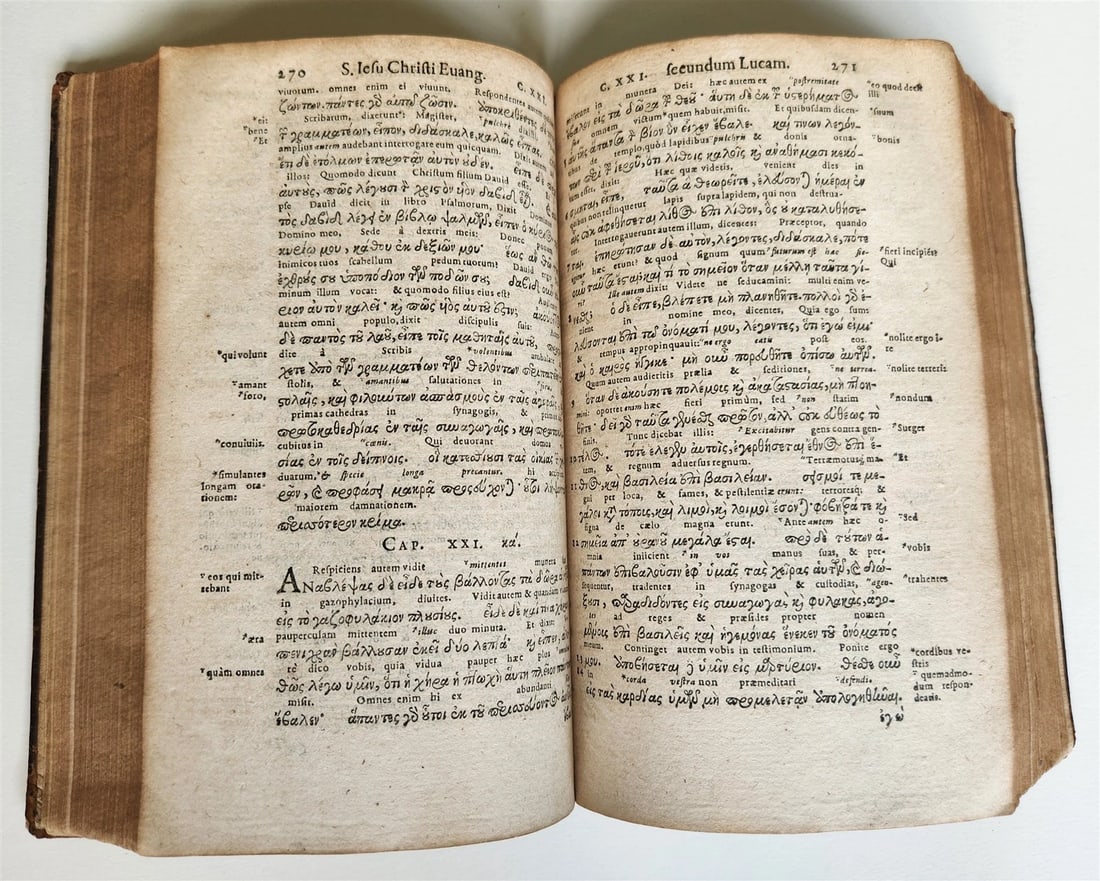 270 S. Iesu Christi Euang. C. XXI.
viuorum. omnes enim ei viuunt. Respondentes autem
ζώντων. πάντες γὸ αὐτῷ ζῶσιν. Ὑποκριθέντες δέ
*eit
Scribarum, dixerunt: Magister, *pulchrè dixisti.
*bene
τ͂ γραμματέων, εἶπον, διδάσκαλε, καλῶς εἶπας.
*Et
amplius autem audebant interrogare eum quicquam. Dixit autem
ἔτι δὲ ἐτόλμων ἐπερωτᾶν αὐτὸν οὐδέν. εἶπε δὲ
illos: Quomodo dicunt Christum filium Dauid esse.
αὐτούς, πῶς λέγουσι τ͂ χριστὸν υἱὸν δαβὶδ εἶναι.
pse Dauid dicit in libro Psalmorum, Dixit Dominus
τὸς δαβὶδ λέγει ἐν βίβλῳ ψαλμῶν, εἶπεν ὁ κύριος
Domino meo, Sede à dextris meis: Donec ponam
κυρίῳ μου, κάθου ἐκ δεξιῶν μου· ἕως ἂν θῶ
Inimicos tuos scabellum pedum tuorum? Dauid
ἐχθρούς σου ὑποπόδιον τῶν ποδῶν σου; δαβὶδ οὖν
minum illum vocat: & quomodo filius eius est?
ριον αὐτὸν καλεῖ· καὶ πῶς υἱὸς αὐτοῦ ἐστιν;
autem omni populo, dixit discipulis suis:
δὲ παντὸς τοῦ λαοῦ, εἶπε τοῖς μαθηταῖς αὑτοῦ,
*qui volunt
dite à Scribis *volentibus ambulare
χετε ἀπὸ τῶν γραμματέων τῶν θελόντων περιπατεῖν
*amant
stolis, & *amantibus salutationes in foro,
*foro,
στολαῖς, καὶ φιλούντων ἀσπασμοὺς ἐν ταῖς ἀγοραῖς,
primas cathedras in synagogis, & primos
πρωτοκαθεδρίας ἐν ταῖς συναγωγαῖς, καὶ πρωτοκλι
*conuiuiis.
cubitos in *cænis. Qui deuorant domos
σίας ἐν τοῖς δείπνοις. οἱ κατεσθίουσι τὰς οἰκίας τῶν
*simulantes
duatum, *& specie longa precantur. hi
longam ora-
tionem:
ρῶν, καὶ προφάσει μακρὰ προσεύχονται· οὗτοι
maiorem damnationem.
περισσότερον κρίμα.
CAP. XXI. κά.
Respiciens autem vidit *mittentes munera
*eos qui mit-
tebant
ΑΝαβλέψας δὲ εἶδε τοὺς βάλλοντας τὰ δῶρα
in gazophylacium, diuites. Vidit autem & quandam
εἰς τὸ γαζοφυλάκιον πλουσίους. εἶδε δὲ καί τινα
*æra
pauperculam mittentem *illuc duo minuta. Et dixit:
πενιχρὰν βάλλουσαν ἐκεῖ δύο λεπτά· καὶ εἶπεν,
*quàm omnes
rè dico vobis, quia vidua pauper hæc plus
θῶς λέγω ὑμῖν, ὅτι ἡ χήρα ἡ πτωχὴ αὕτη πλεῖον
misit. Omnes enim hi ex abundanti
ἔβαλεν· ἅπαντες γὸ οὗτοι ἐκ τοῦ περισσεύοντος
C. XXI. secundum Lucam. 271
in munera Dei: hæc autem ex *postremitate
*eo quod deest
illi
ἔβαλον εἰς τὰ δῶρα τοῦ θεοῦ· αὕτη δὲ ἐκ τοῦ ὑστερήματος
omnem victum *quem habuit, misit. Et quibusdam dicen-
*suum
αὑτῆς ἅπαντα τὸν βίον ὃν εἶχεν ἔβαλε. καί τινων λεγόν-
de templo, quòd lapidibus *pulchris & donis orna-
*bonis
των περὶ τοῦ ἱεροῦ, ὅτι λίθοις καλοῖς καὶ ἀναθήμασι κεκό-
tum esset, dixit: Hæc quæ videtis, venient dies in
σμηται, εἶπε, ταῦτα ἃ θεωρεῖτε, ἐλεύσονται ἡμέραι ἐν
quibus non relinquetur lapis supra lapidem, qui non destrua-
αἷς οὐκ ἀφεθήσεται λίθος ἐπὶ λίθον, ὃς οὐ καταλυθήσε-
Interrogauerunt autem illum, dicentes: Præceptor, quando
7 ται. ἐπηρώτησαν δὲ αὐτόν, λέγοντες, διδάσκαλε, πότε
hæc erunt? & quod signum quum *futurum est hæc fie-
*fieri incipiēt
οὖν ταῦτα ἔσται; καὶ τί τὸ σημεῖον ὅταν μέλλῃ ταῦτα γί-
*Qui
Ille autem dixit: Videte ne seducamini: multi enim ve-
ὁ δὲ εἶπε, βλέπετε μὴ πλανηθῆτε· πολλοὶ γὸ ἐ-
nient in nomine meo, dicentes, Quia ego sum:
λεύσονται ἐπὶ τῷ ὀνόματί μου, λέγοντες, ὅτι ἐγώ εἰμι·
& tempus appropinquauit: *ne ergo eatis post eos.
*nolite ergo i-
re
καὶ ὁ καιρὸς ἤγγικε· μὴ οὖν πορευθῆτε ὀπίσω αὐτῶν.
Quum autem audieritis prælia & seditiones, *ne terrea-
*nolite terreri:
9 ὅταν δὲ ἀκούσητε πολέμους καὶ ἀκαταστασίας, μὴ πτοη-
mini: oportet enim hæc fieri primùm, sed *non statim
*nondum
θῆτε· δεῖ γὸ ταῦτα γενέσθαι πρῶτον, ἀλλ' οὐκ εὐθέως τὸ
finis. Tunc dicebat illis: *Excitabitur gens contra gen-
*Surget
10 τέλος. τότε ἔλεγεν αὐτοῖς, ἐγερθήσεται ἔθνος ἐπὶ ἔ-
tem, & regnum aduersus regnum. *Terræmotusque ma-
*Et
11 θνος, καὶ βασιλεία ἐπὶ βασιλείαν. σεισμοί τε με-
gni per loca, & fames, & pestilentiæ erunt: terroresque &
γάλοι κατὰ τόπους, καὶ λιμοὶ, καὶ λοιμοὶ ἔσονται· φόβητρά τε καὶ
signa de cælo magna erunt. *Ante autem hæc o-
*Sed
12 σημεῖα ἀπ' οὐρανοῦ μεγάλα ἔσται. πρὸ δὲ τούτων ἁ-
mnia iniicient *in vos manus suas, & per-
*vobis
πάντων ἐπιβαλοῦσιν ἐφ' ὑμᾶς τὰς χεῖρας αὑτῶν, καὶ διώ-
sequentur, tradentes in synagogas & custodias, *age-
*trahentes
ξουσι, παραδιδόντες εἰς συναγωγὰς καὶ φυλακάς, ἀγο-
ad reges & præsides propter nomen
μένους ἐπὶ βασιλεῖς καὶ ἡγεμόνας ἕνεκεν τοῦ ὀνόματός
meum. Continget autem vobis in testimonium. Ponite ergo
*cordibus ve-
stris
13 μου. ἀποβήσεται δὲ ὑμῖν εἰς μαρτύριον. θέσθε οὖν
14 in *corda vestra non præmeditari *defendi.
*quemadmo-
dum respon-
deatis.
εἰς τὰς καρδίας ὑμῶν μὴ προμελετᾶν ἀπολογηθῆναι.
ἐγὼ